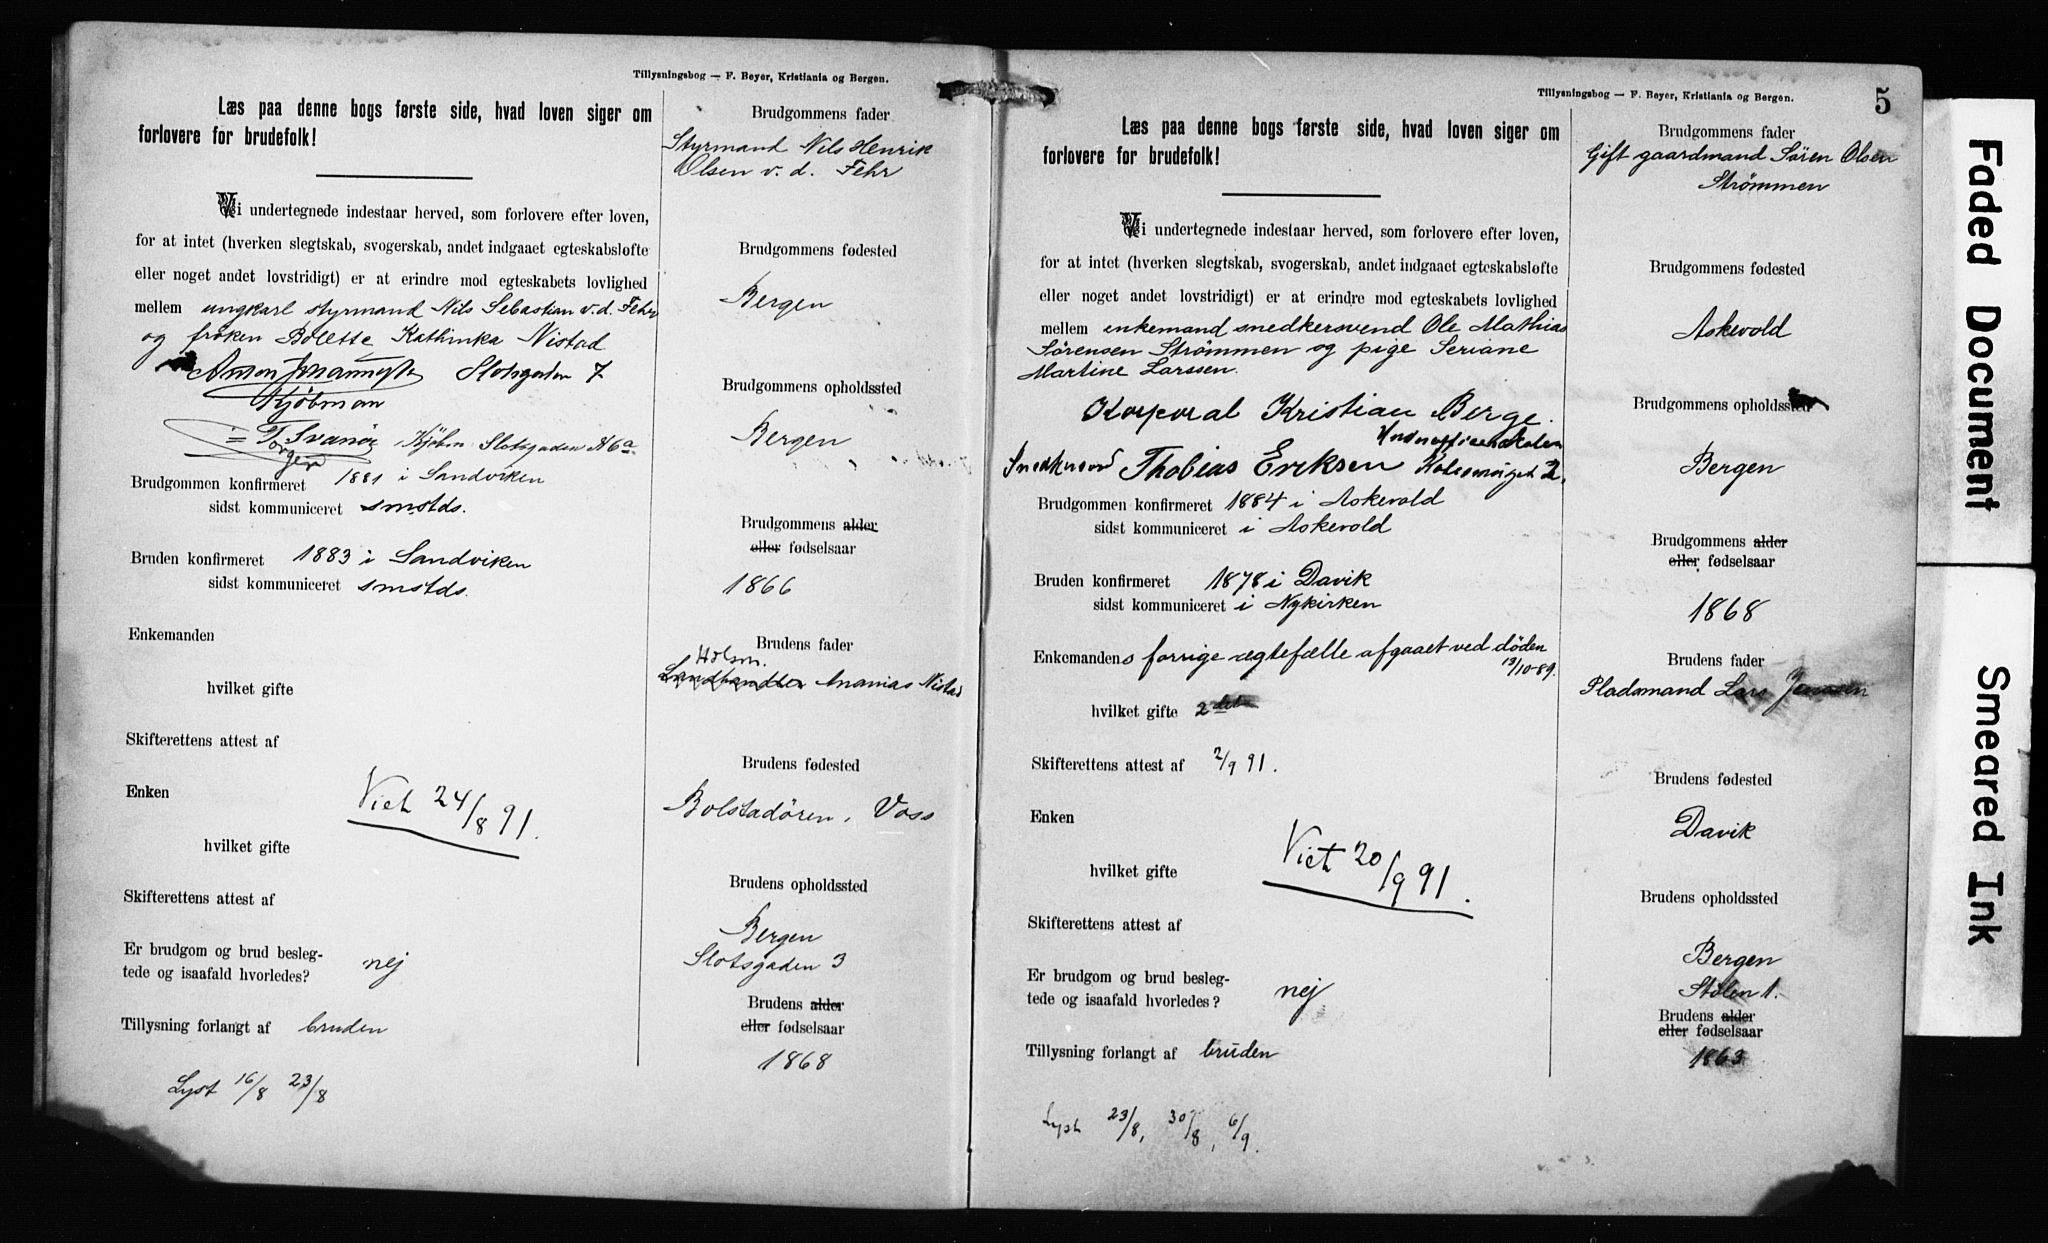 Tillysningsbog — F. Beyer, Kristiania og Bergen.
Læs paa denne bogs første side, hvad loven siger om
forlovere for brudefolk!
Vi undertegnede indestaar herved, som forlovere efter loven,
for at intet (hverken slegtskab, svogerskab, andet indgaaet egteskabsløfte
eller noget andet lovstridigt) er at erindre mod egteskabets lovlighed
mellem ungkarl styrmand Nils Sebastian v.d. Fehr
og frøken Bolette Kathinka Nistad
Anton Johannesen Slotsgaden 7
Kjøbman
Torger Svanöe Kjøbm. Slotsgaden № 6a
Brudgommen konfirmeret 1881 i Sandviken
sidst kommuniceret smstds.
Bruden konfirmeret 1883 i Sandviken
sidst kommuniceret smstds.
Enkemanden
hvilket gifte
Skifterettens attest af
Enken
Viet 24/8 91.
hvilket gifte
Skifterettens attest af
Er brudgom og brud besleg-
tede og isaafald hvorledes? nej
Tillysning forlangt af bruden
Lyst 16/8 23/8
Brudgommens fader
Styrmand Nils Henrik
Olsen v. d. Fehr
Brudgommens fødested
Bergen
Brudgommens opholdssted
Bergen
Brudgommens alder
eller fødselsaar
1866
Brudens fader
Landhandler Ananias Nistad
Brudens fødested
Bolstadören, Voss
Brudens opholdssted
Bergen
Slotsgaden 3
Brudens alder
eller fødselsaar
1868
Tillysningsbog — F. Beyer, Kristiania og Bergen.
5
Læs paa denne bogs første side, hvad loven siger om
forlovere for brudefolk!
Vi undertegnede indestaar herved, som forlovere efter loven,
for at intet (hverken slegtskab, svogerskab, andet indgaaet egteskabsløfte
eller noget andet lovstridigt) er at erindre mod egteskabets lovlighed
mellem enkemand snedkersvend Ole Mathias
Sørensen Strømmen og pige Seriane
Martine Larssen.
Korporal Kristian Berge.
Underofficerskolen
Snedkersvd Thobias Eriksen 2.
Brudgommen konfirmeret 1884 i Askevold
sidst kommuniceret i Askevold
Bruden konfirmeret 1878 i Davik
sidst kommuniceret i Nykirken
Enkemandens forrige ægtefælle afgaaet ved døden
13/10-89.
hvilket gifte 2det
Skifterettens attest af 2/9 91.
Enken
Viet 20/9 91.
hvilket gifte
Skifterettens attest af
Er brudgom og brud besleg-
tede og isaafald hvorledes? nej
Tillysning forlangt af bruden
Lyst 23/8, 30/8, 6/9.
Brudgommens fader
Gift gaardmand Søren Olsen
Strømmen
Brudgommens fødested
Askevold
Brudgommens opholdssted
Bergen
Brudgommens alder
eller fødselsaar
1868
Brudens fader
Pladsmand Lars Jenssen
Brudens fødested
Davik
Brudens opholdssted
Bergen
Stølen 1.
Brudens alder
eller fødselsaar
1863
Faded Document
Smeared Ink